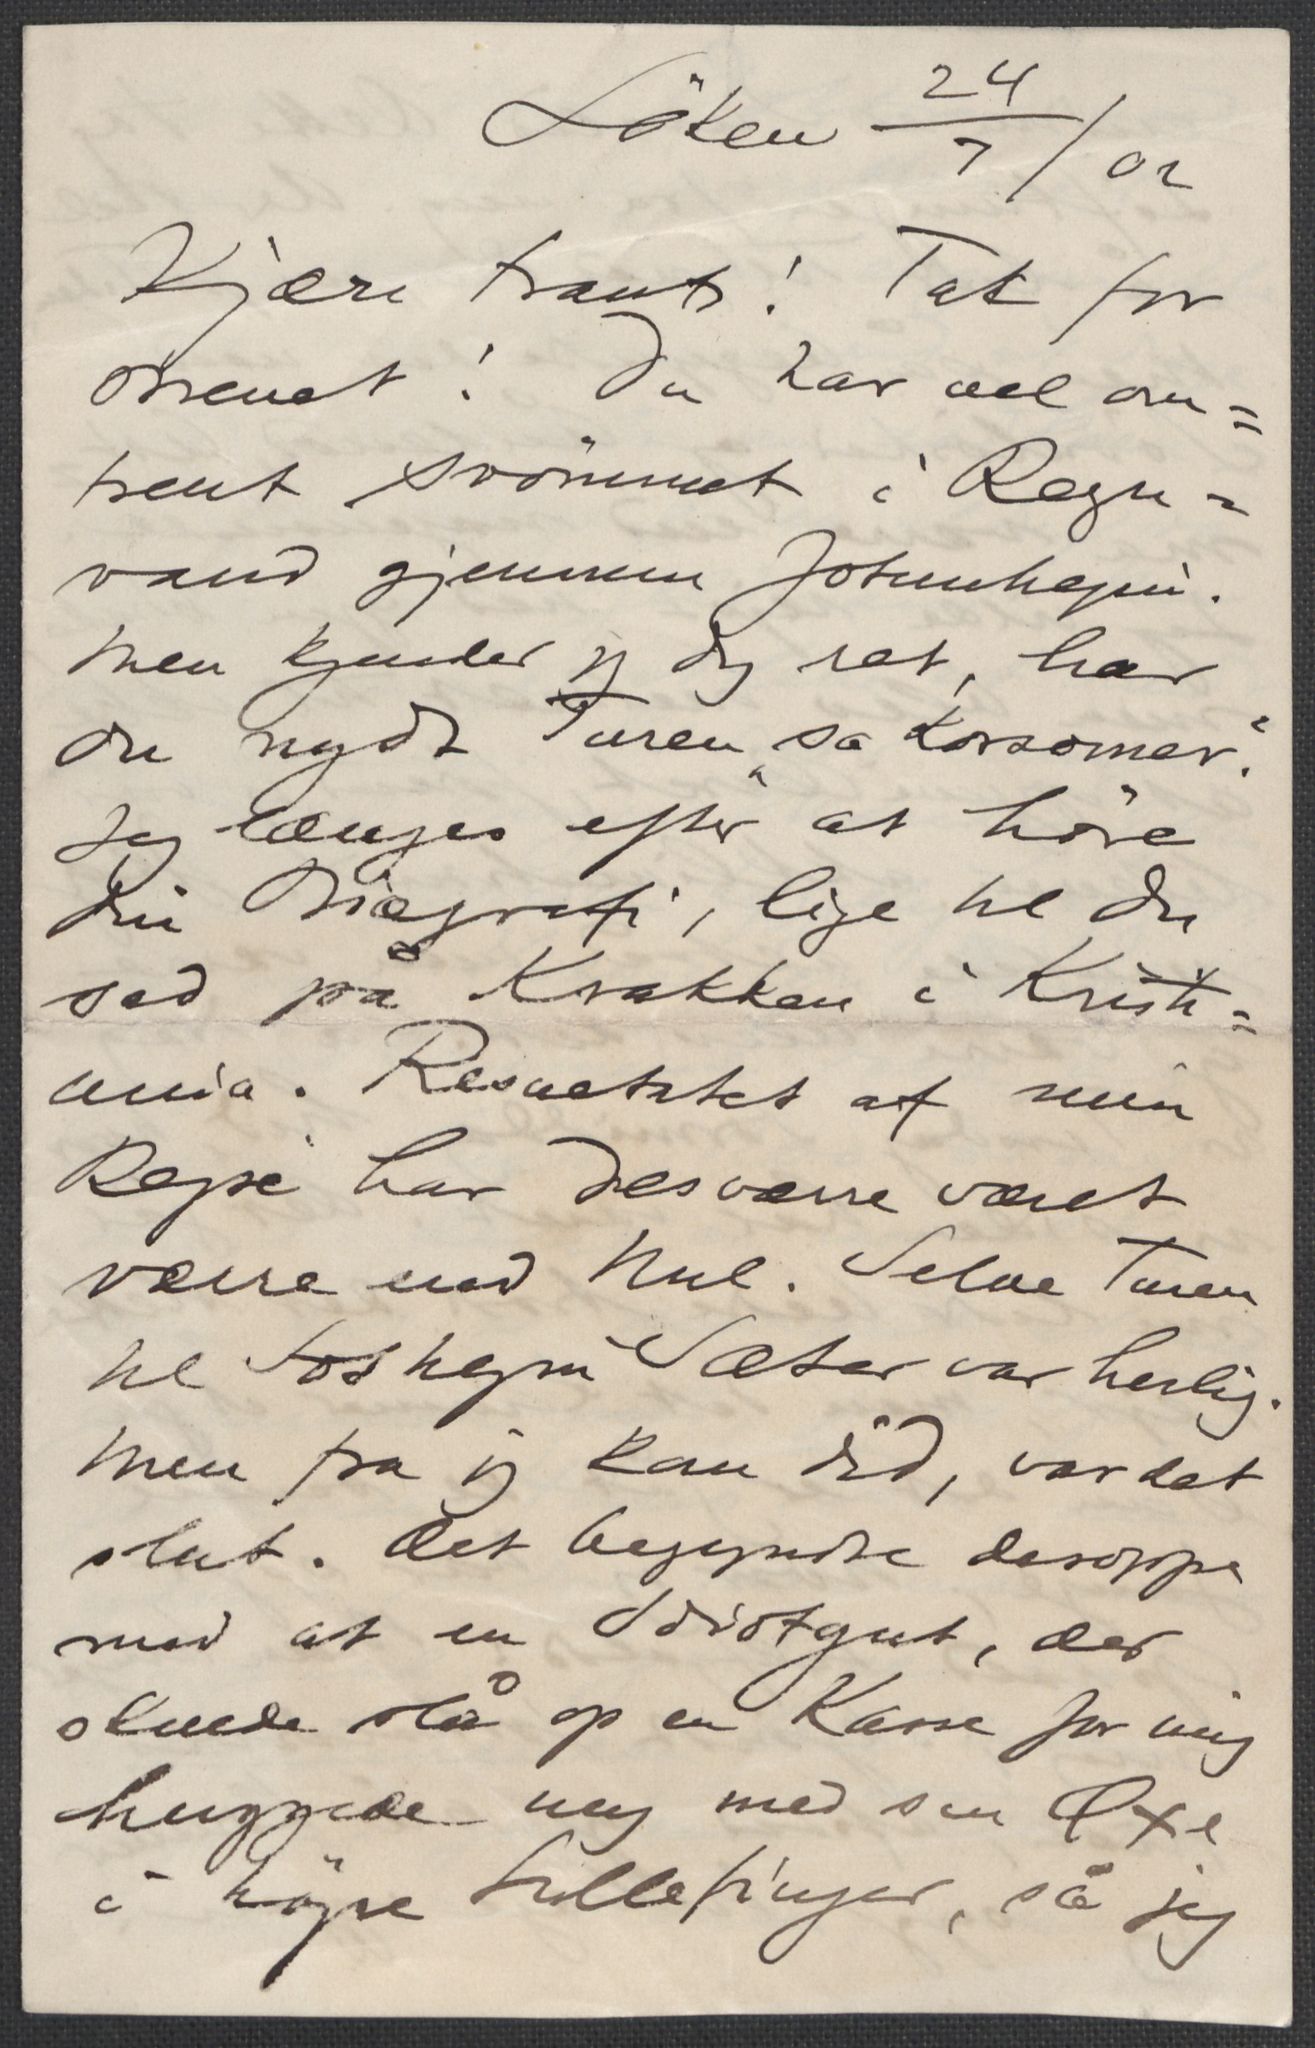 Löken 24/7/02
Kjære Frants! Tak for
Brevet! Du har vel om=
trent svömmet i Regn=
vand gjennem Jotunhejm.
Men kjender jg dig ret, har
du nydt Turen „sa korsomer“.
Jeg længes efter at höre
din Biografi, lige til du
sad på Krakken i Kristi=
ania. Resultatet af min
Rejse har desværre været
værre end Nul. Selve Turen
til Fosshejm Sæter var herlig.
Men fra jg kom did, var det
slut. Det begyndte deroppe
med at en Idiotgut, der
skulde slå op en Kasse for mig
huggede mig med sin Øxe
i höjre Lillefinger, så jeg